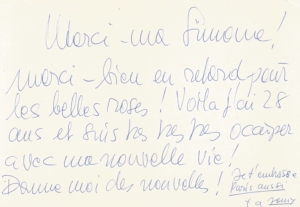 Merci - ma Simone!
merci - bien en retard pour
les belles roses! Voilà j'ai 28
ans et suis très très très occuper
avec ma nouvelle vie!
Donne moi des nouvelles!
Je t'embrasse
Paris aussi